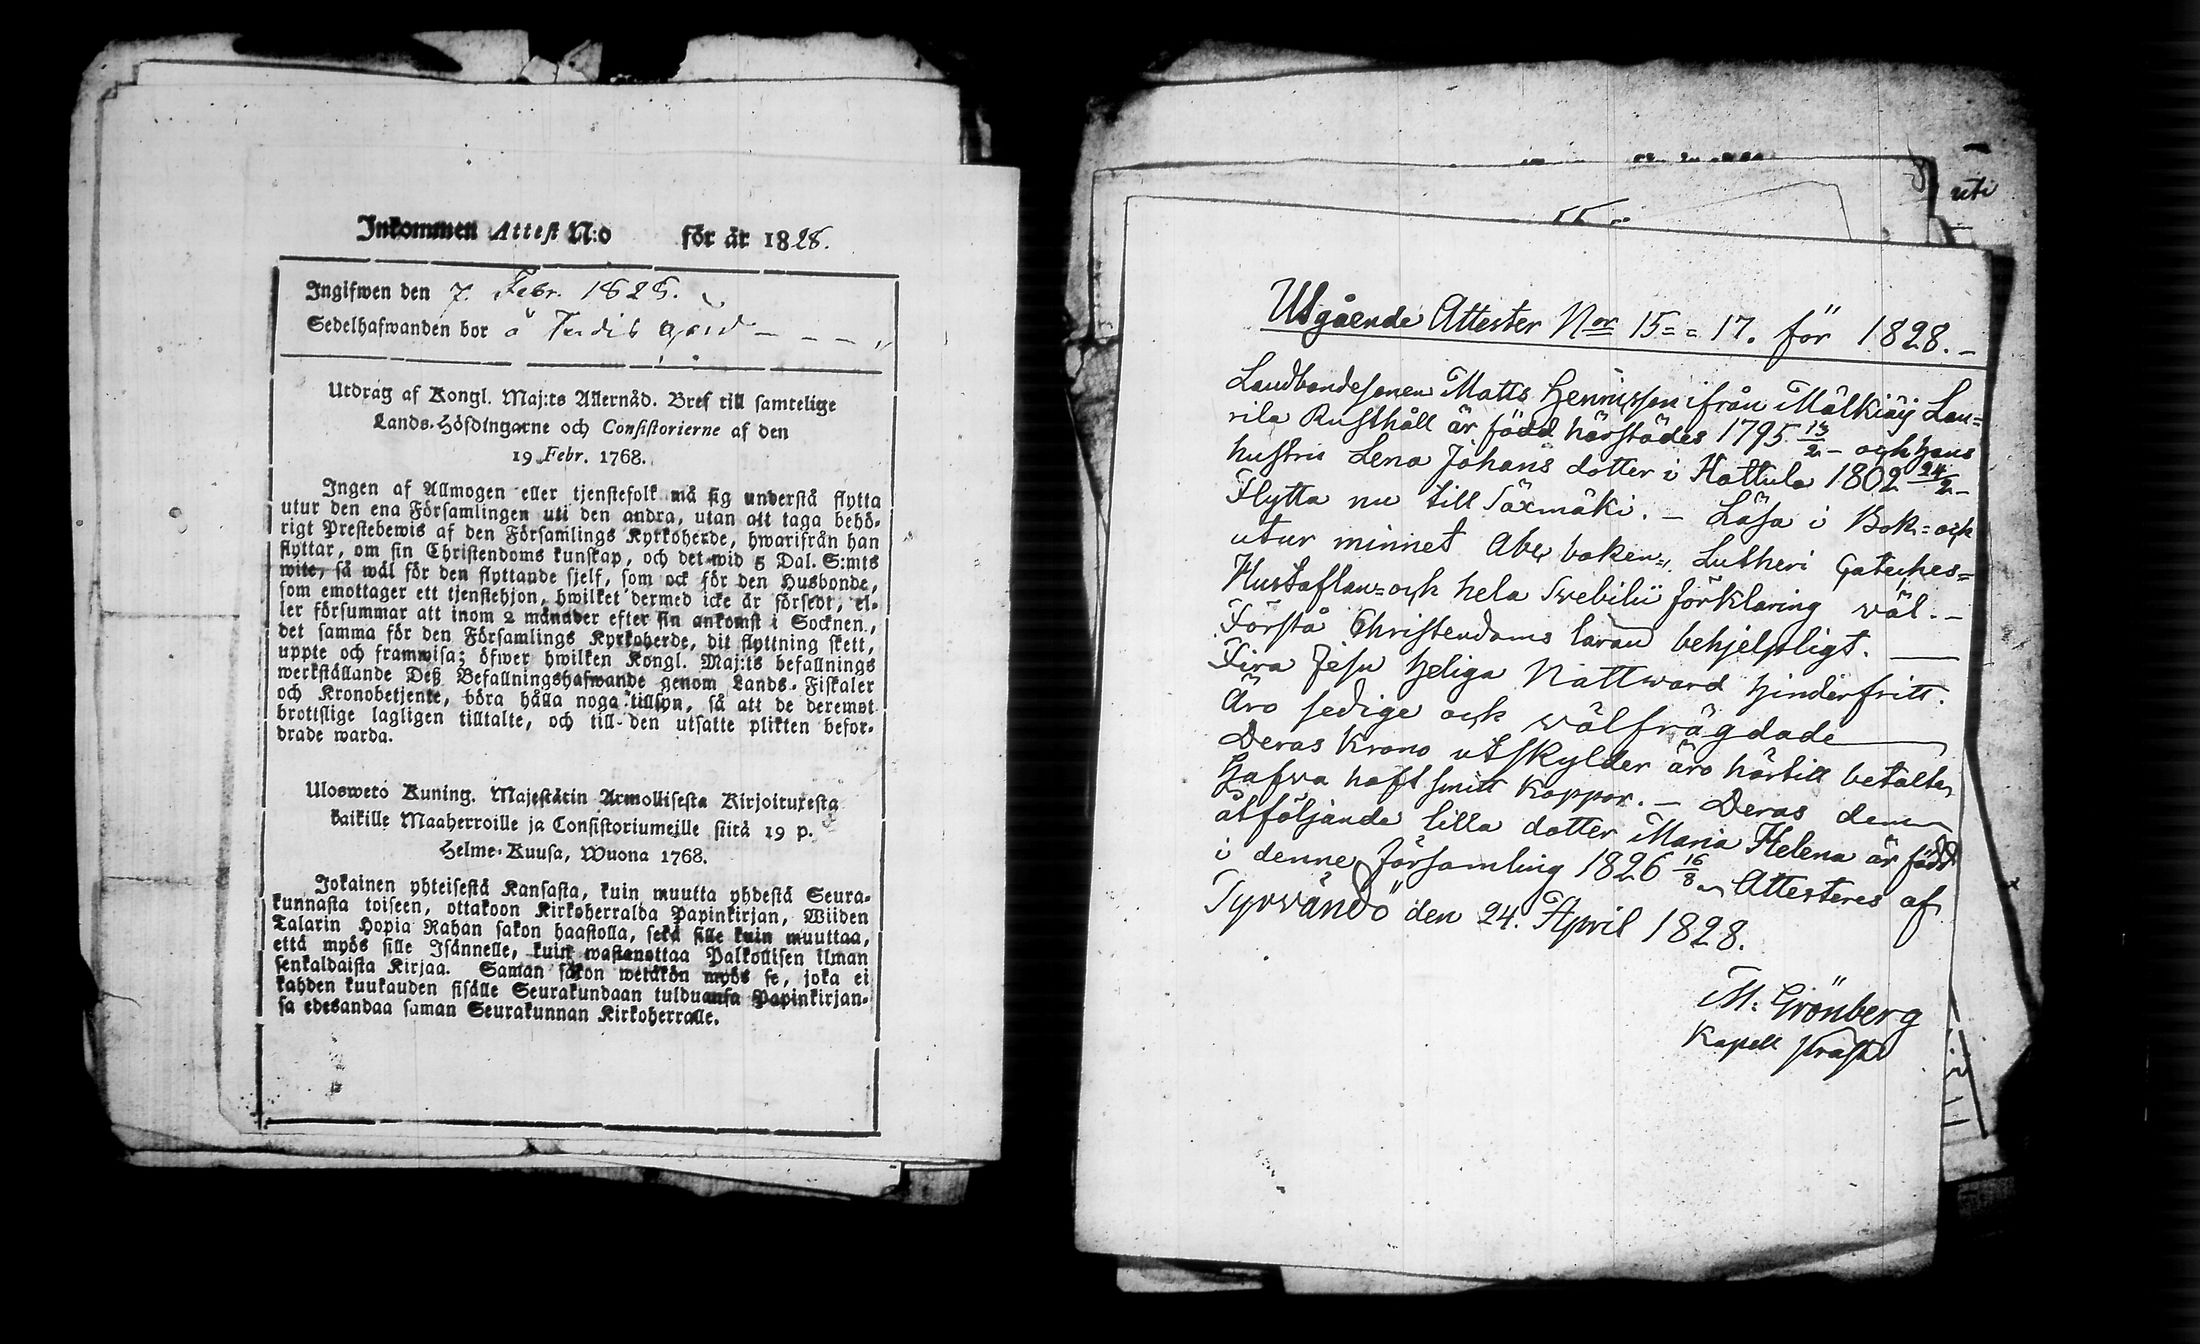 Inkommen Attest N:o för år 1828.
Ingifwen den 7. Febr. 1828.
Sedelhafwanden bor å
Utdrag af Kongl. Maj:ts Allernåd. Bref till samtelige
Lands-Höfdingarne och Consistorierne af den
19 Febr. 1768.
Ingen af Allmogen eller tjenstefolk må sig understå flytta
utur den ena Församlingen uti den andra, utan att taga behö-
rigt Prestebewis af den Församlings Kyrkoherde, hwarifrån han
flyttar, om sin Christendoms kunskap, och det wid 5 Dal. S:mts
wite, så wäl för den flyttande sjelf, som ock för den Husbonde,
som emottager ett tjenstehjon, hwilket dermed icke är försedt, el-
ler försummar att inom 2 månader efter sin ankomst i Socknen,
det samma för den Församlings Kyrkoherde, dit flyttning skett,
uppte och framwisa; öfwer hwilken Kongl. Maj:ts befallnings
werkställande Deß Befallningshafwande genom Lands-Fiskaler
och Kronobetjente, böra hålla noga tillsyn, så att de deremot
brottslige lagligen tilltalte, och till den utsatte plikten befor-
drade warda.
Uloswetö Kuning. Majestätin Armollisesta Kirjoituxesta
kaikille Maaherroille ja Consistoriumeille siitä 19 p.
Helme-Kuusa, Wuona 1768.
Jokainen yhteisestä Kansasta, kuin muutta yhdestä Seura-
kunnasta toiseen, ottakoon Kirkoherralda Papinkirjan, Wiiden
Talarin Hopia Rahan sakon haastolla, sekä sille kuin muuttaa,
että myös sille Isännelle, kuin wastanottaa Palkollisen ilman
senkaldaista Kirjaa. Saman sakon wetäkön myös se, joka ei
kahden kuukauden sisälle Seurakundaan tulduansa Papinkirjan-
sa edesandaa saman Seurakunnan Kirkoherralle.
uti
Utgående Attester Nor 15 = = 17. för 1828. -
Landbondesonen Matts Henricsson ifrån Mälkiäij Lau=
rila Rusthåll är född härstädes 1795 13/2 - och hans
hustru Lena Johans dotter i Hattula 1802 24/2 -
Flytta nu till Säxmäki. - Läsa i Bok= och
utur minnet Abc boken, Lutheri Cateches=
Hustaflan= och hela Svebilii förklaring väl. -
Förstå Christendoms läran behjelpligt. —
Fira Jesu heliga Nattward hinderfritt.
Äro sedige och wälfrägdade —
Deras Krono utskylder äro härtill betalte,
Hafva haft smitt koppor. - Deras dem
åtföljande lilla dotter Maria Helena är född
i denne församling 1826 16/8 Attesteres af
Tyrväntö den 24. April 1828.
M: Grönberg
Kapell